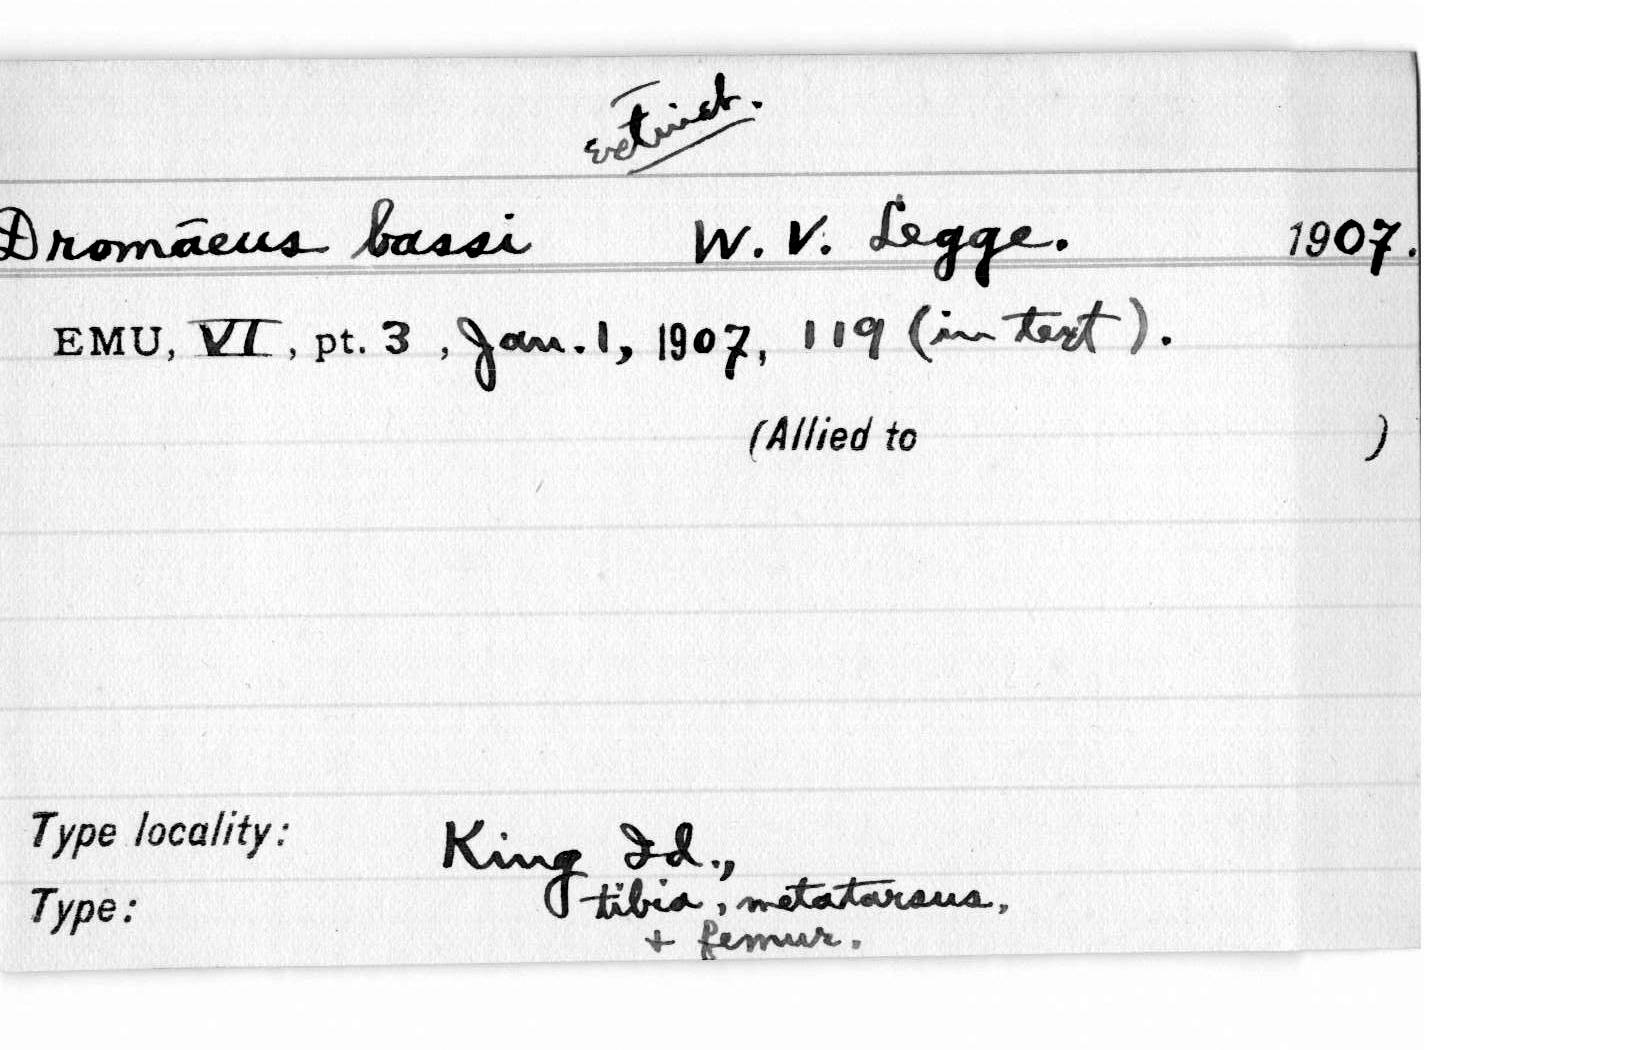 extinct.
Dromāeus bassi W. V. Legge. 1907.
EMU, VI, pt. 3, Jan. 1, 1907, 119 (in text).
(Allied to )
Type locality: King Id.,
Type: tibia, metatarsus,
+ femur.